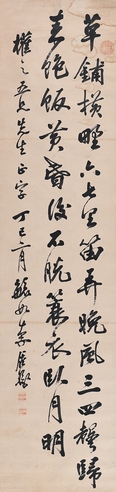 草鋪橫野六七里笛弄晚風三四聲歸
來飽飯黃昏後不脫蓑衣臥月明
權之五兄先生正字丁巳二月毓如